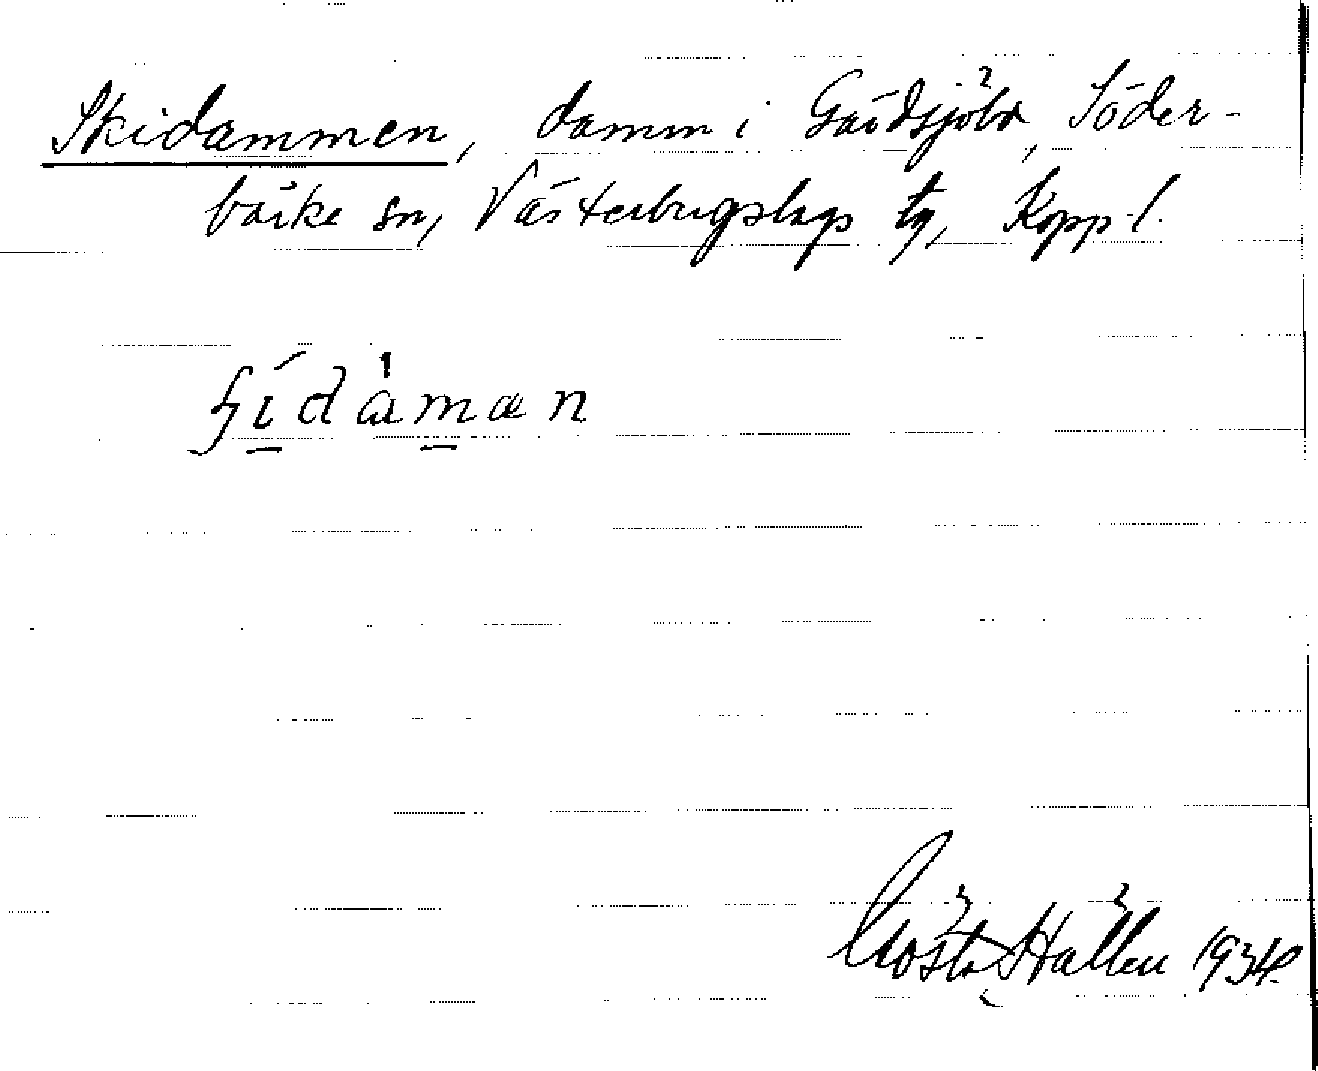 Skidammen, damm i Gårdsjöbo, Söder-
bärke sn, Västerbergslags tg, Kopp. l.
ʃídàman
Gösta Hallén 1934.